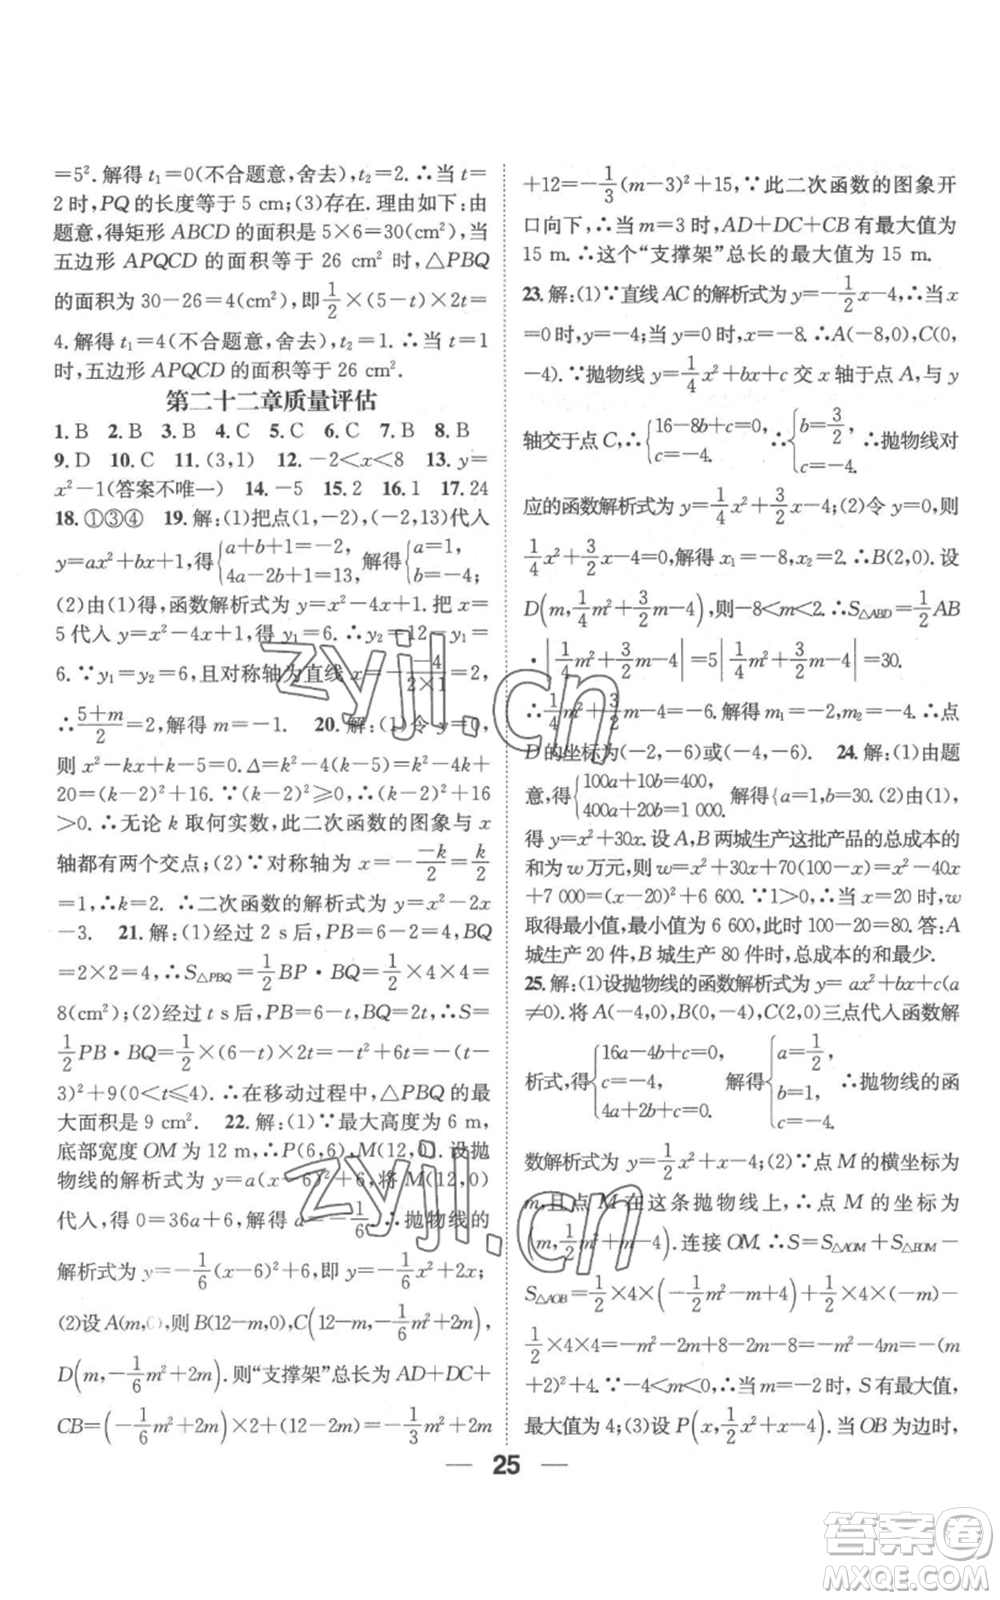 =5². 解得 t₁=0(不合题意,舍去), t₂=2. ∴当 t=
2时, PQ的长度等于 5 cm; (3)存在. 理由如下: 由
题意, 得矩形 ABCD 的面积是 5×6=30(cm²), 当
五边形 APQCD 的面积等于 26 cm² 时, △PBQ
的面积为 30-26=4(cm²), 即 1/2×(5-t)×2t=
4. 解得 t₁=4(不合题意, 舍去), t₂=1. ∴当 t=1
时, 五边形 APQCD 的面积等于 26 cm².
第二十二章质量评估
1. B 2. B 3. B 4. C 5. C 6. C 7. B 8. B
9. D 10. C 11. (3,1) 12. -2<x<8 13. y=
x²-1(答案不唯一) 14. -5 15. 2 16. 1 17. 24
18. ①③④ 19. 解:(1)把点(1,-2),(-2,13)代入
y=ax²+bx+1, 得{a+b+1=-2, 4a-2b+1=13, 解得{a=1, b=-4;
(2)由(1)得, 函数解析式为 y=x²-4x+1. 把 x=
5代入 y=x²-4x+1, 得 y₁=6. ∴y₂=12-y₁=
6. ∵y₁=y₂=6, 且对称轴为直线 x=-(-4)/(2×1)=2,
∴(5+m)/2=2, 解得 m=-1. 20. 解:(1)令 y=0,
则 x²-kx+k-5=0. Δ=k²-4(k-5)=k²-4k+
20=(k-2)²+16. ∵(k-2)²≥0, ∴(k-2)²+16
>0. ∴无论 k 取何实数, 此二次函数的图象与 x
轴都有两个交点; (2)∵对称轴为 x=-(-k)/2=k/2
=1, ∴k=2. ∴二次函数的解析式为 y=x²-2x
-3. 21. 解:(1)经过 2 s后, PB=6-2=4, BQ
=2×2=4, ∴S△PBQ=1/2 BP·BQ=1/2×4×4=
8(cm²); (2)经过 t s后, PB=6-t, BQ=2t, ∴S=
1/2 PB·BQ=1/2×(6-t)×2t=-t²+6t=-(t-
3)²+9(0<t≤4). ∴在移动过程中, △PBQ的最
大面积是 9 cm². 22. 解:(1)∵最大高度为 6 m,
底部宽度 OM 为 12 m, ∴P(6,6), M(12,0). 设抛
物线的解析式为 y=a(x-6)²+6, 将M(12,0)
代入, 得 0=36a+6, 解得 a=-1/6, ∴抛物线的
解析式为 y=-1/6(x-6)²+6, 即 y=-1/6x²+2x;
(2)设A(m,0), 则 B(12-m,0), C(12-m,-1/6m²+2m),
D(m,-1/6m²+2m). 则“支撑架”总长为 AD+DC+
CB=(-1/6m²+2m)×2+(12-2m)=-1/3m²+2m
+12=-1/3(m-3)²+15, ∵此二次函数的图象开
口向下, ∴当 m=3 时, AD+DC+CB有最大值为
15 m. ∴这个“支撑架”总长的最大值为 15 m.
23. 解:(1)∵直线AC的解析式为 y=-1/2x-4, ∴当x
=0时, y=-4; 当y=0时, x=-8. ∴A(-8,0), C(0,
-4). ∵抛物线 y=1/4x²+bx+c交 x 轴于点 A, 交 y
轴交于点 C, ∴{16-8b+c=0, c=-4. ∴{b=3/2, c=-4. ∴抛物线对
应的函数解析式为 y=1/4x²+3/2x-4; (2)令 y=0, 则
1/4x²+3/2x-4=0. 解得 x₁=-8, x₂=2. ∴B(2,0). 设
D(m,1/4m²+3/2m-4), 则-8<m<2. ∴S△ABD=1/2AB
·|1/4m²+3/2m-4|=5|1/4m²+3/2m-4|=30.
∴1/4m²+3/2m-4=-6. 解得 m₁=-2, m₂=-4. ∴点
D的坐标为(-2,-6)或(-4,-6). 24. 解:(1)由题
意, 得{100a+10b=400, 400a+20b=1 000. 解得{a=1, b=30. (2)由(1),
得 y=x²+30x. 设A,B两城生产这批产品的总成本的
和为 w万元, 则 w=x²+30x+70(100-x)=x²-40x
+7 000=(x-20)²+6 600. ∵1>0, ∴当 x=20 时, w
取得最小值, 最小值为 6 600, 此时 100-20=80. 答: A
城生产 20 件, B城生产 80 件时, 总成本的和最少.
25. 解:(1)设抛物线的函数解析式为 y=ax²+bx+c(a
≠0). 将 A(-4,0), B(0,-4), C(2,0)三点代入函数解
析式, 得{16a-4b+c=0, c=-4, 4a+2b+c=0. 解得{a=1/2, b=1, c=-4. ∴抛物线的函
数解析式为 y=1/2x²+x-4; (2)∵点 M 的横坐标为
m, 且点 M 在这条抛物线上, ∴点 M 的坐标为
(m,1/2m²+m-4). 连接 OM. ∴S=S△AOM+S△BOM-
S△AOB=1/2×4×(-1/2m²-m+4)+1/2×4×(-m)-
1/2×4×4=-m²-2m+8-2m-8=-m²-4m=-(m
+2)²+4. ∵-4<m<0, ∴当 m=-2 时, S有最大值,
最大值为 4; (3)设 P(x,1/2x²+x-4). 当OB为边时,
25
zyjl.cn
zyjl.cn
答案卷
MXQE.COM